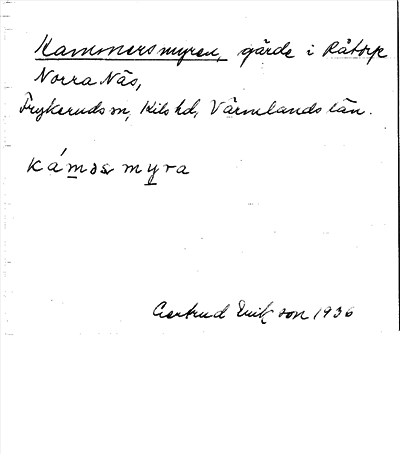 Kammersmyren, gärde i Råtorp
Norra Näs,
Frykeruds sn, Kils hd, Värmlands län.
Gertrud Erikson 1936